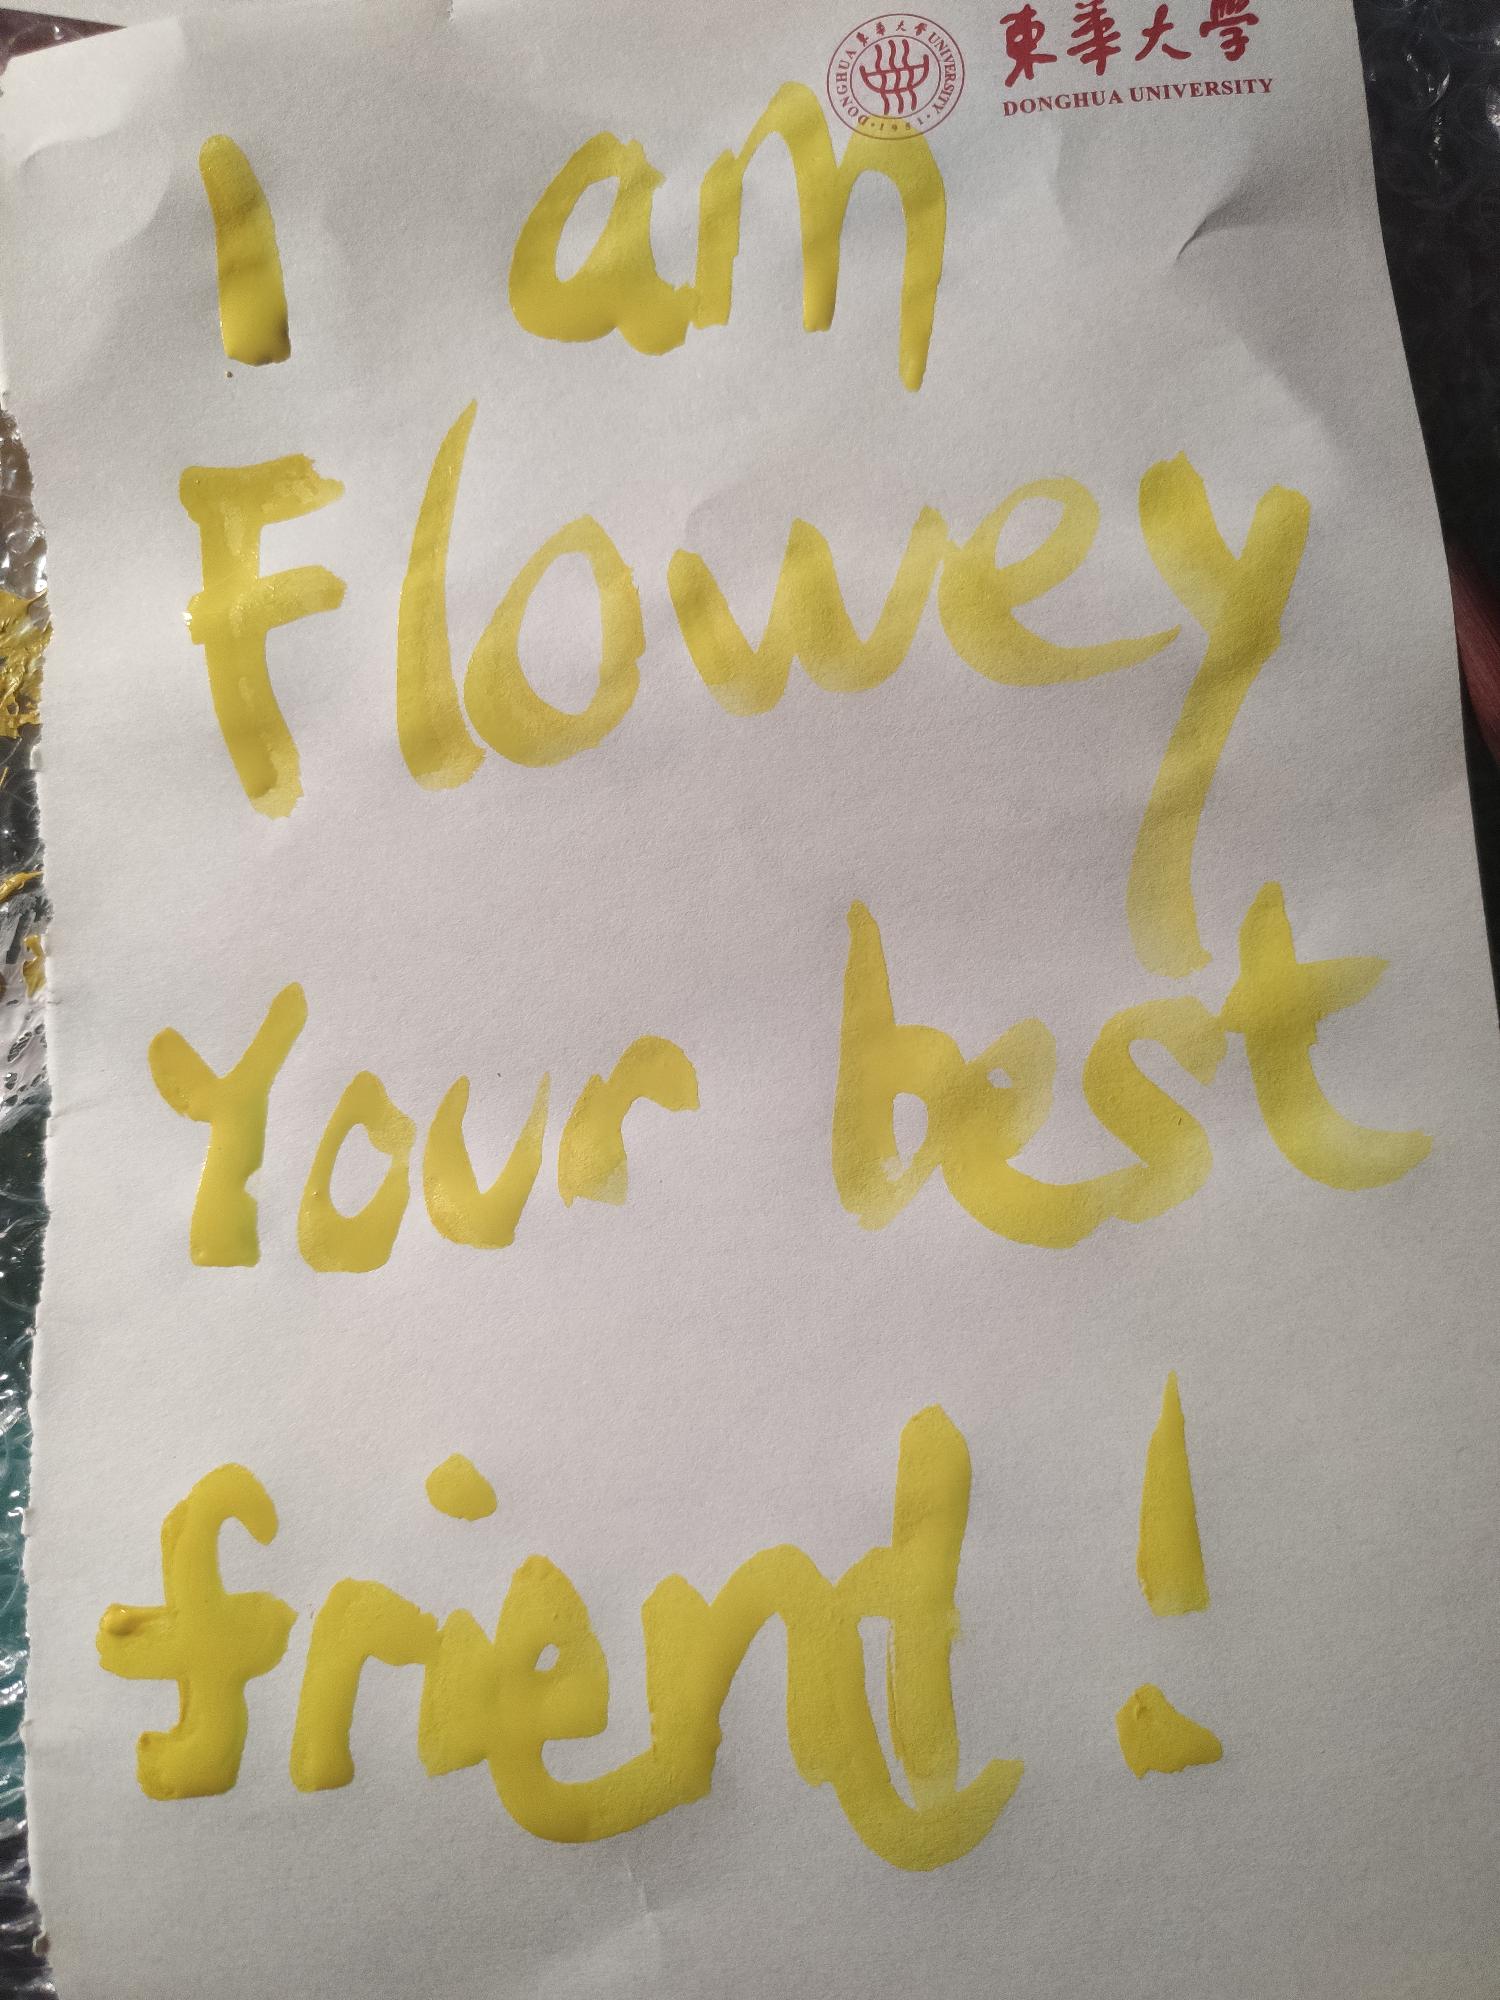 東華大學
DONGHUA UNIVERSITY
東華大學 DONGHUA UNIVERSITY · 1951 ·
I am
Flowey
Your best
friend !